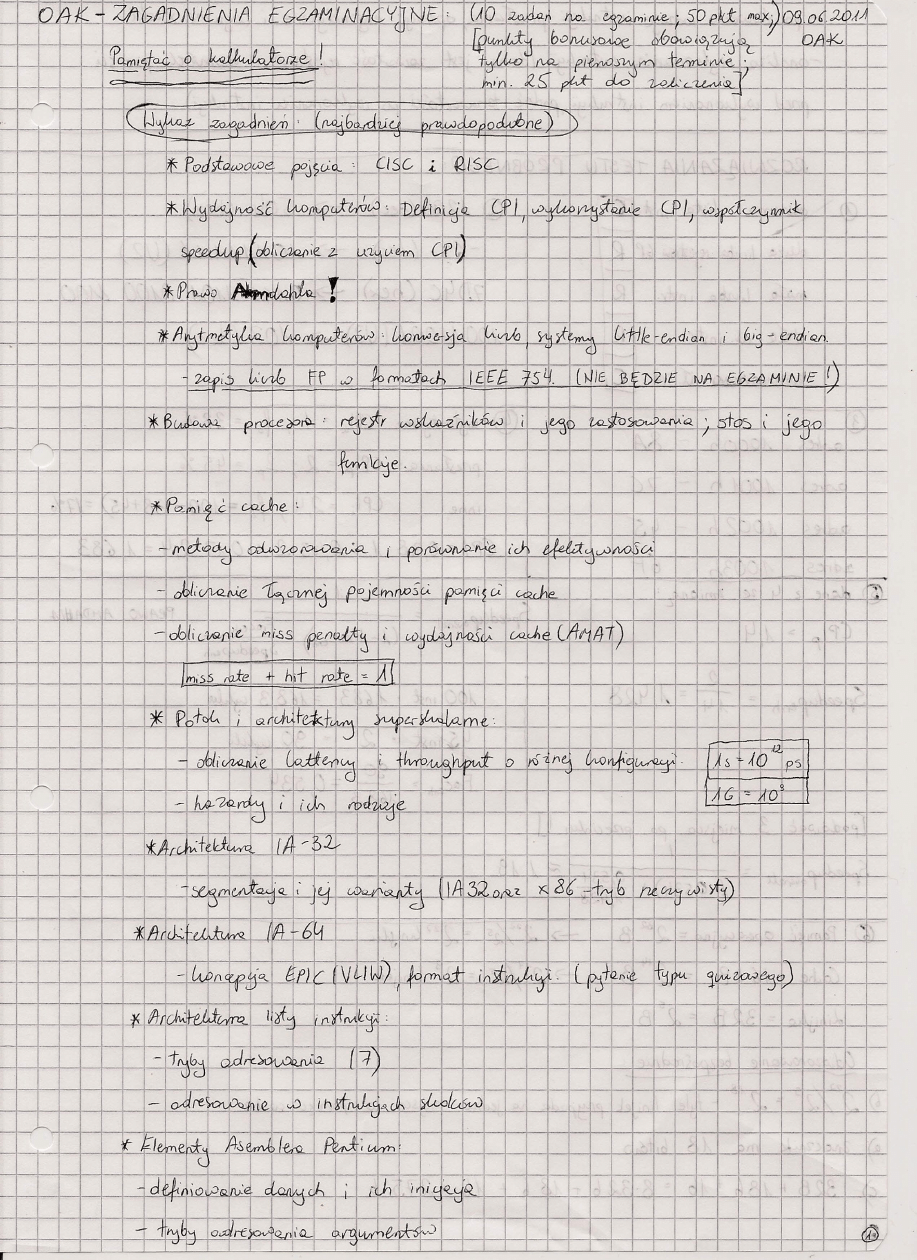 OAK - ZAGADNIENIA EGZAMINACYJNE: (10 zadań na egzaminie; 50 pkt max;) 09.06.2011
[punkty bonusowe obowiązują OAK
Pamiętać o kalkulatorze! tylko na pierwszym terminie;
min. 25 pkt do zaliczenia]
Wykaz zagadnień: (najbardziej prawdopodobne)
* Podstawowe pojęcia: CISC i RISC
* Wydajność komputerów: Definicja CPI, wykorzystanie CPI, współczynnik
speedup (obliczanie z użyciem CPI)
* Prawo Amdahla !
* Arytmetyka komputerów: konwersja liczb, systemy little-endian i big-endian.
- zapis liczb FP w formatach IEEE 754. (NIE BĘDZIE NA EGZAMINIE!)
* Budowa procesora: rejestr wskaźników i jego zastosowania; stos i jego
funkcje.
* Pamięć cache:
- metody odwzorowania i porównanie ich efektywności
- obliczanie łącznej pojemności pamięci cache
- obliczanie miss penalty i wydajności cache (AMAT)
miss rate + hit rate = 1
* Potok i architektury superskalarne:
- obliczanie lattency i throughput o różnej konfiguracji. 1s = 10^12 ps
1G = 10^9
- hazardy i ich rodzaje
* Architektura IA-32
- segmentacja i jej warianty (IA32 oraz x86 - tryb rzeczywisty)
* Architektura IA-64
- koncepcja EPIC (VLIW), format instrukcji. (pytanie typu quizowego)
* Architektura listy instrukcji:
- tryby adresowania (7)
- adresowanie w instrukcjach skoków
* Elementy Asemblera Pentium:
- definiowanie danych i ich inicjacja
- tryby adresowania argumentów